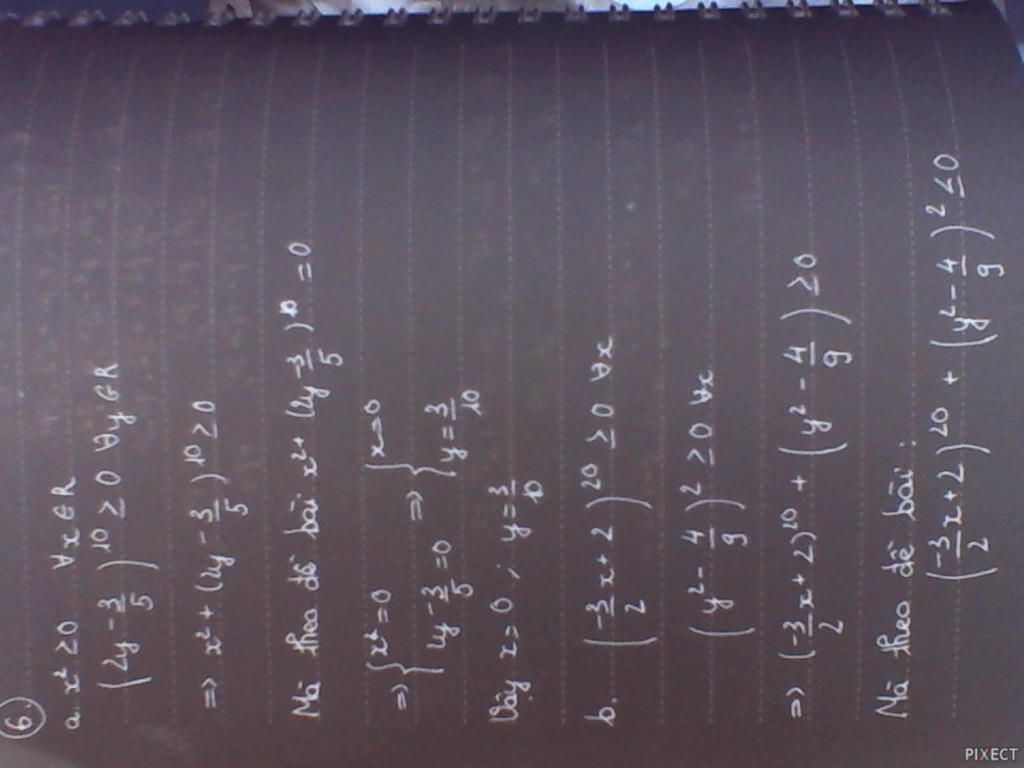 6.
a. x² ≥ 0 ∀x ∈ R
(2y - 3/5)¹⁰ ≥ 0 ∀y ∈ R
=> x² + (2y - 3/5)¹⁰ ≥ 0
Mà theo đề bài x² + (2y - 3/5)¹⁰ = 0
=> { x² = 0 ; 2y - 3/5 = 0 => { x = 0 ; y = 3/10
Vậy x = 0 ; y = 3/10
b. (-3/2 x + 2)²⁰ ≥ 0 ∀x
(y² - 4/9)² ≥ 0 ∀x
=> (-3/2 x + 2)²⁰ + (y² - 4/9) ≥ 0
Mà theo đề bài:
(-3/2 x + 2)²⁰ + (y² - 4/9)² ≤ 0
PIXECT